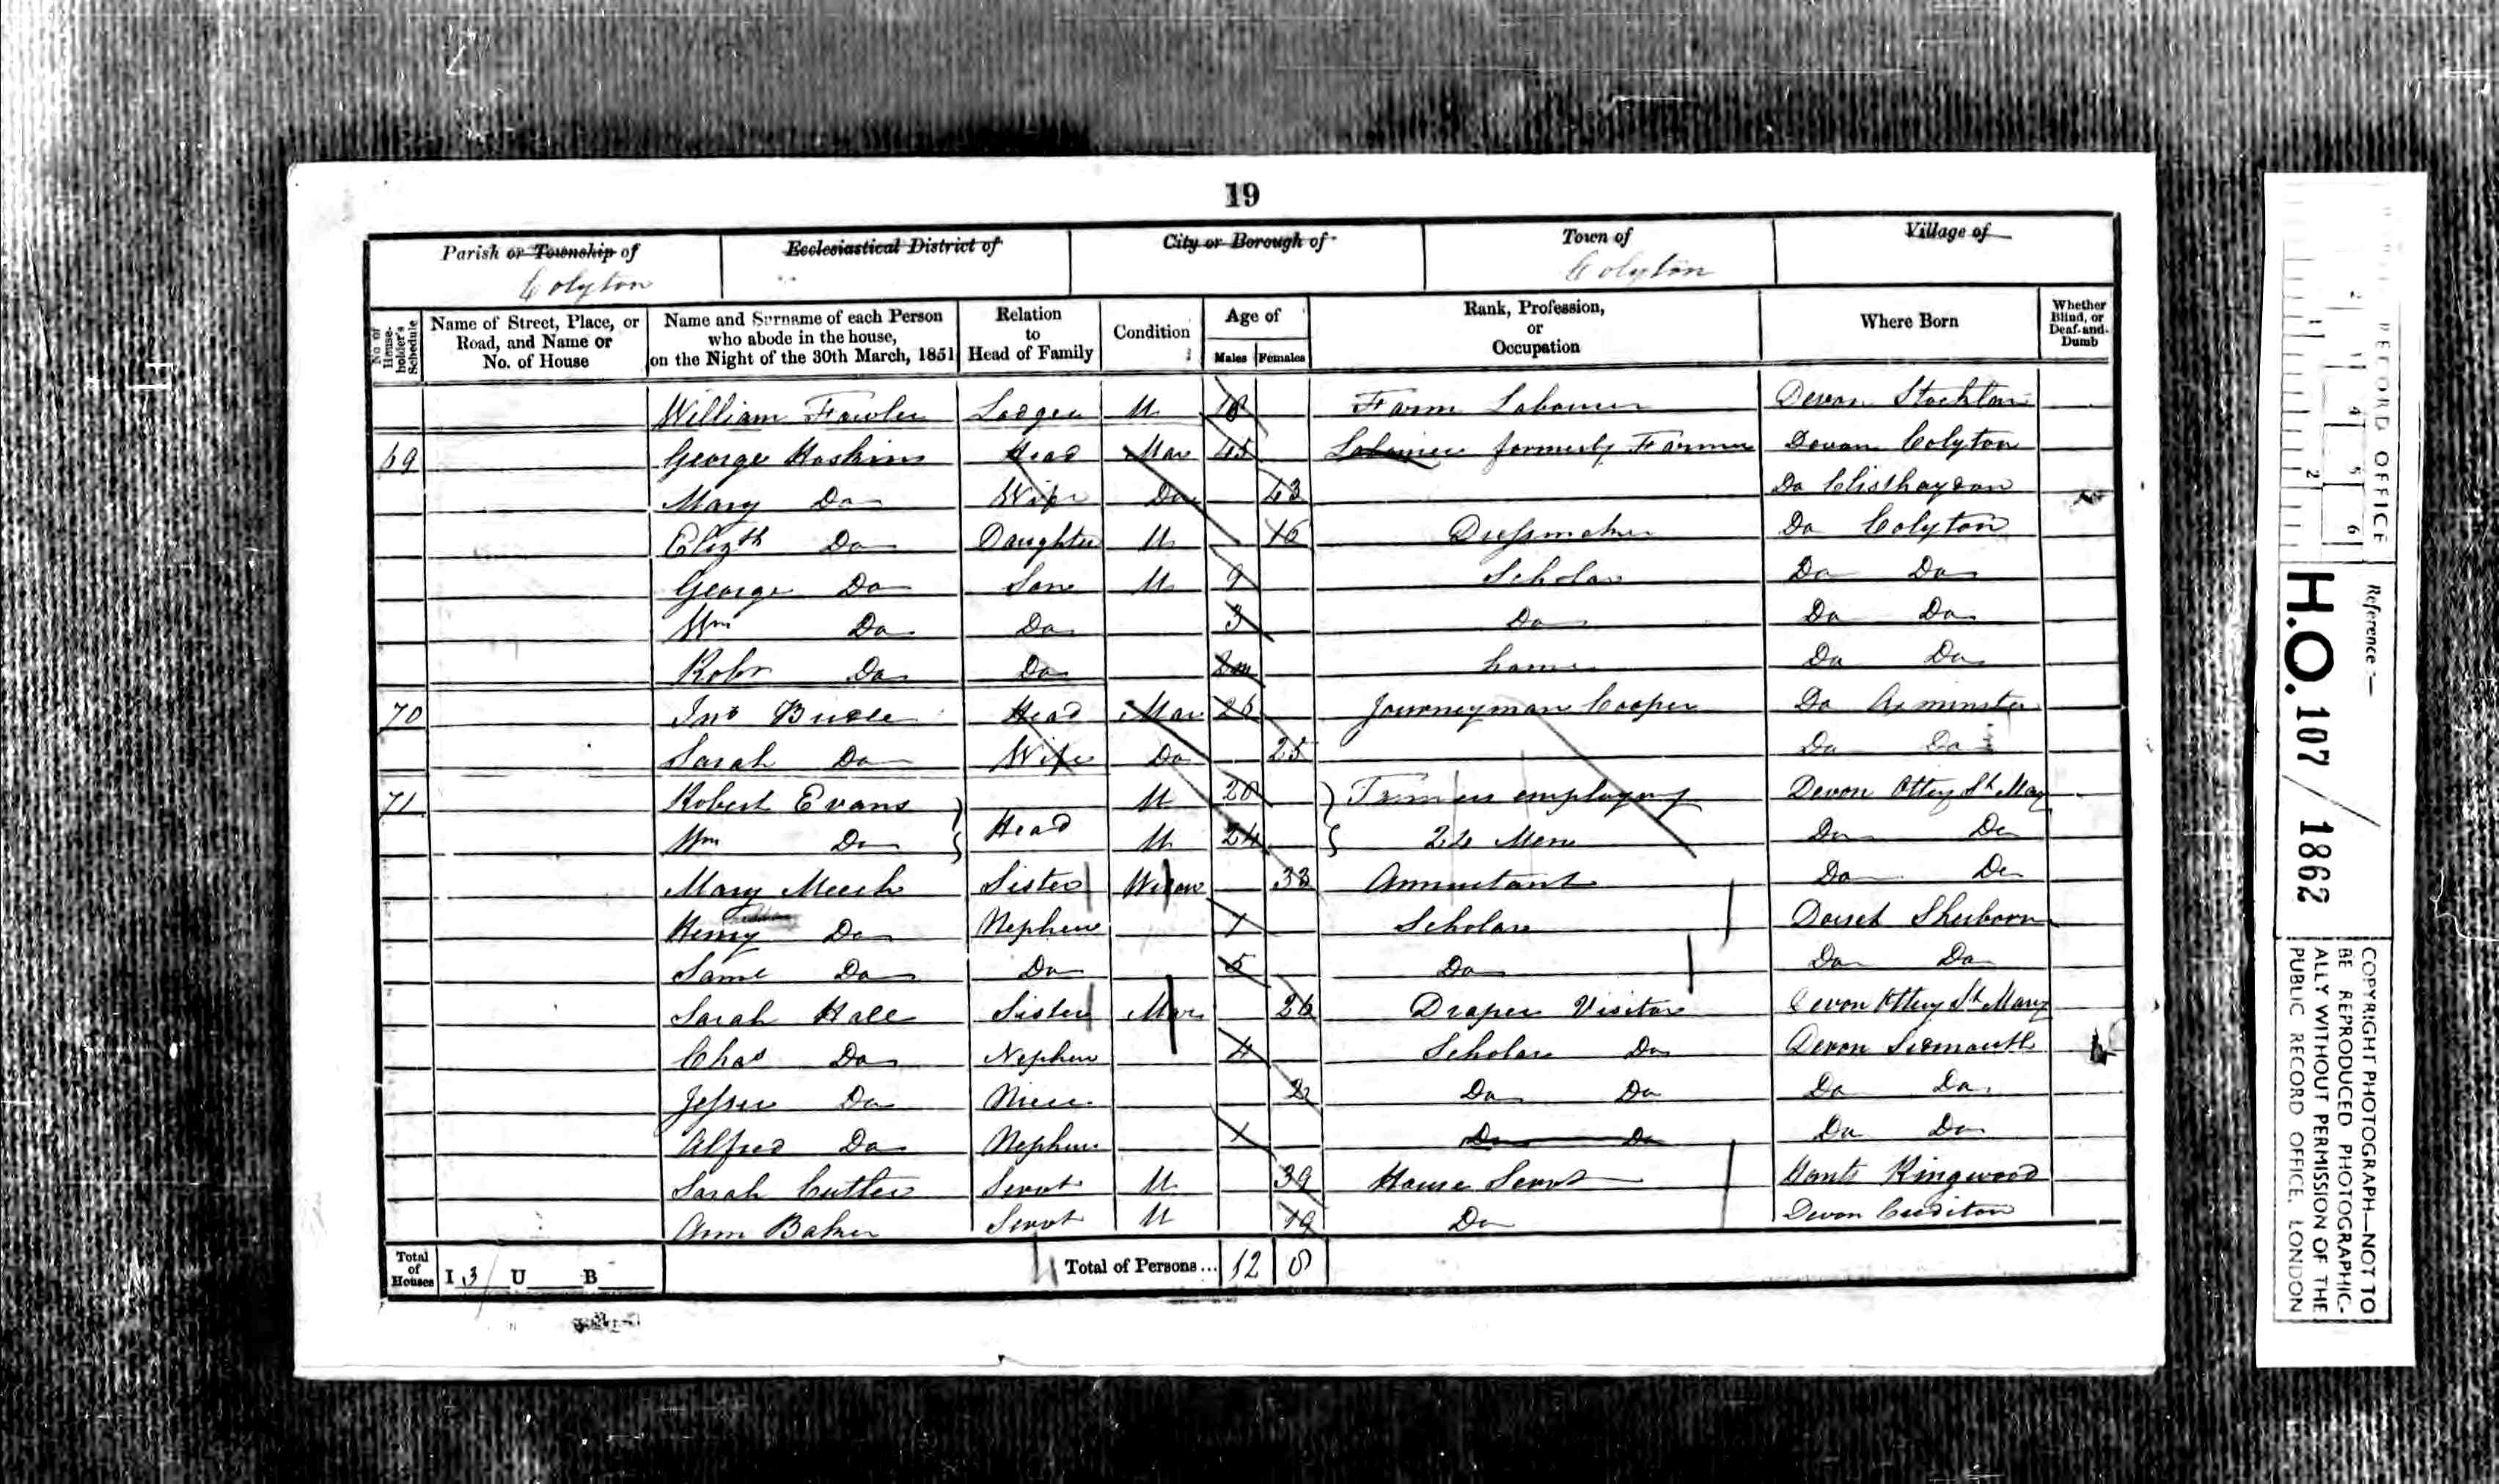 19
Parish or Township of
Colyton
Ecclesiastical District of
City or Borough of
Town of
Colyton
Village of
No. of House-holder's Schedule
Name of Street, Place, or Road, and Name or No. of House
Name and Surname of each Person who abode in the house, on the Night of the 30th March, 1851
Relation to Head of Family
Condition
Age of
Males Females
Rank, Profession, or Occupation
Where Born
Whether Blind, or Deaf-and-Dumb
William Fowler Lodger U 18 Farm Labourer Devon Stockland
69 George Hoskins Head Mar 45 Labourer formerly Farmer Devon Colyton
Mary Do Wife Do 43 Do Clisthaydon
Elizth Do Daughter U 16 Dressmaker Do Colyton
George Do Son U 9 Scholar Do Do
Wm Do Do 3 Do Do Do
Robr Do Do Do Do
70 Jno Head Mar 26 Journeyman Cooper Do Axminster
Sarah Do Wife Do 25 Do Do
71 Robert Evans U 28 Tanners employing Devon Ottery St Mary
Wm Do Head U 24 24 Men Do Do
Mary Meech Sister Widow 33 Annuitant Do Do
Henry Do Nephew 7 Scholar Dorset Sherborn
Saml Do Do 5 Do Do Do
Sarah Hall Sister Mar 26 Draper Visitor Devon Ottery St Mary
Chas Do Nephew 4 Scholar Do Devon Sidmouth
Jessie Do Niece 2 Do Do Do Do
Alfred Do Nephew 1 Do Do Do Do
Sarah Cutler Servt U 39 House Servt Hants Ringwood
Ann Baker Servt U 19 Do Devon Crediton
Total of Houses I 3 U B Total of Persons... 12 8
RECORD OFFICE
Reference:-
H.O. 107 / 1862
COPYRIGHT PHOTOGRAPH—NOT TO
BE REPRODUCED PHOTOGRAPHIC-
ALLY WITHOUT PERMISSION OF THE
PUBLIC RECORD OFFICE, LONDON